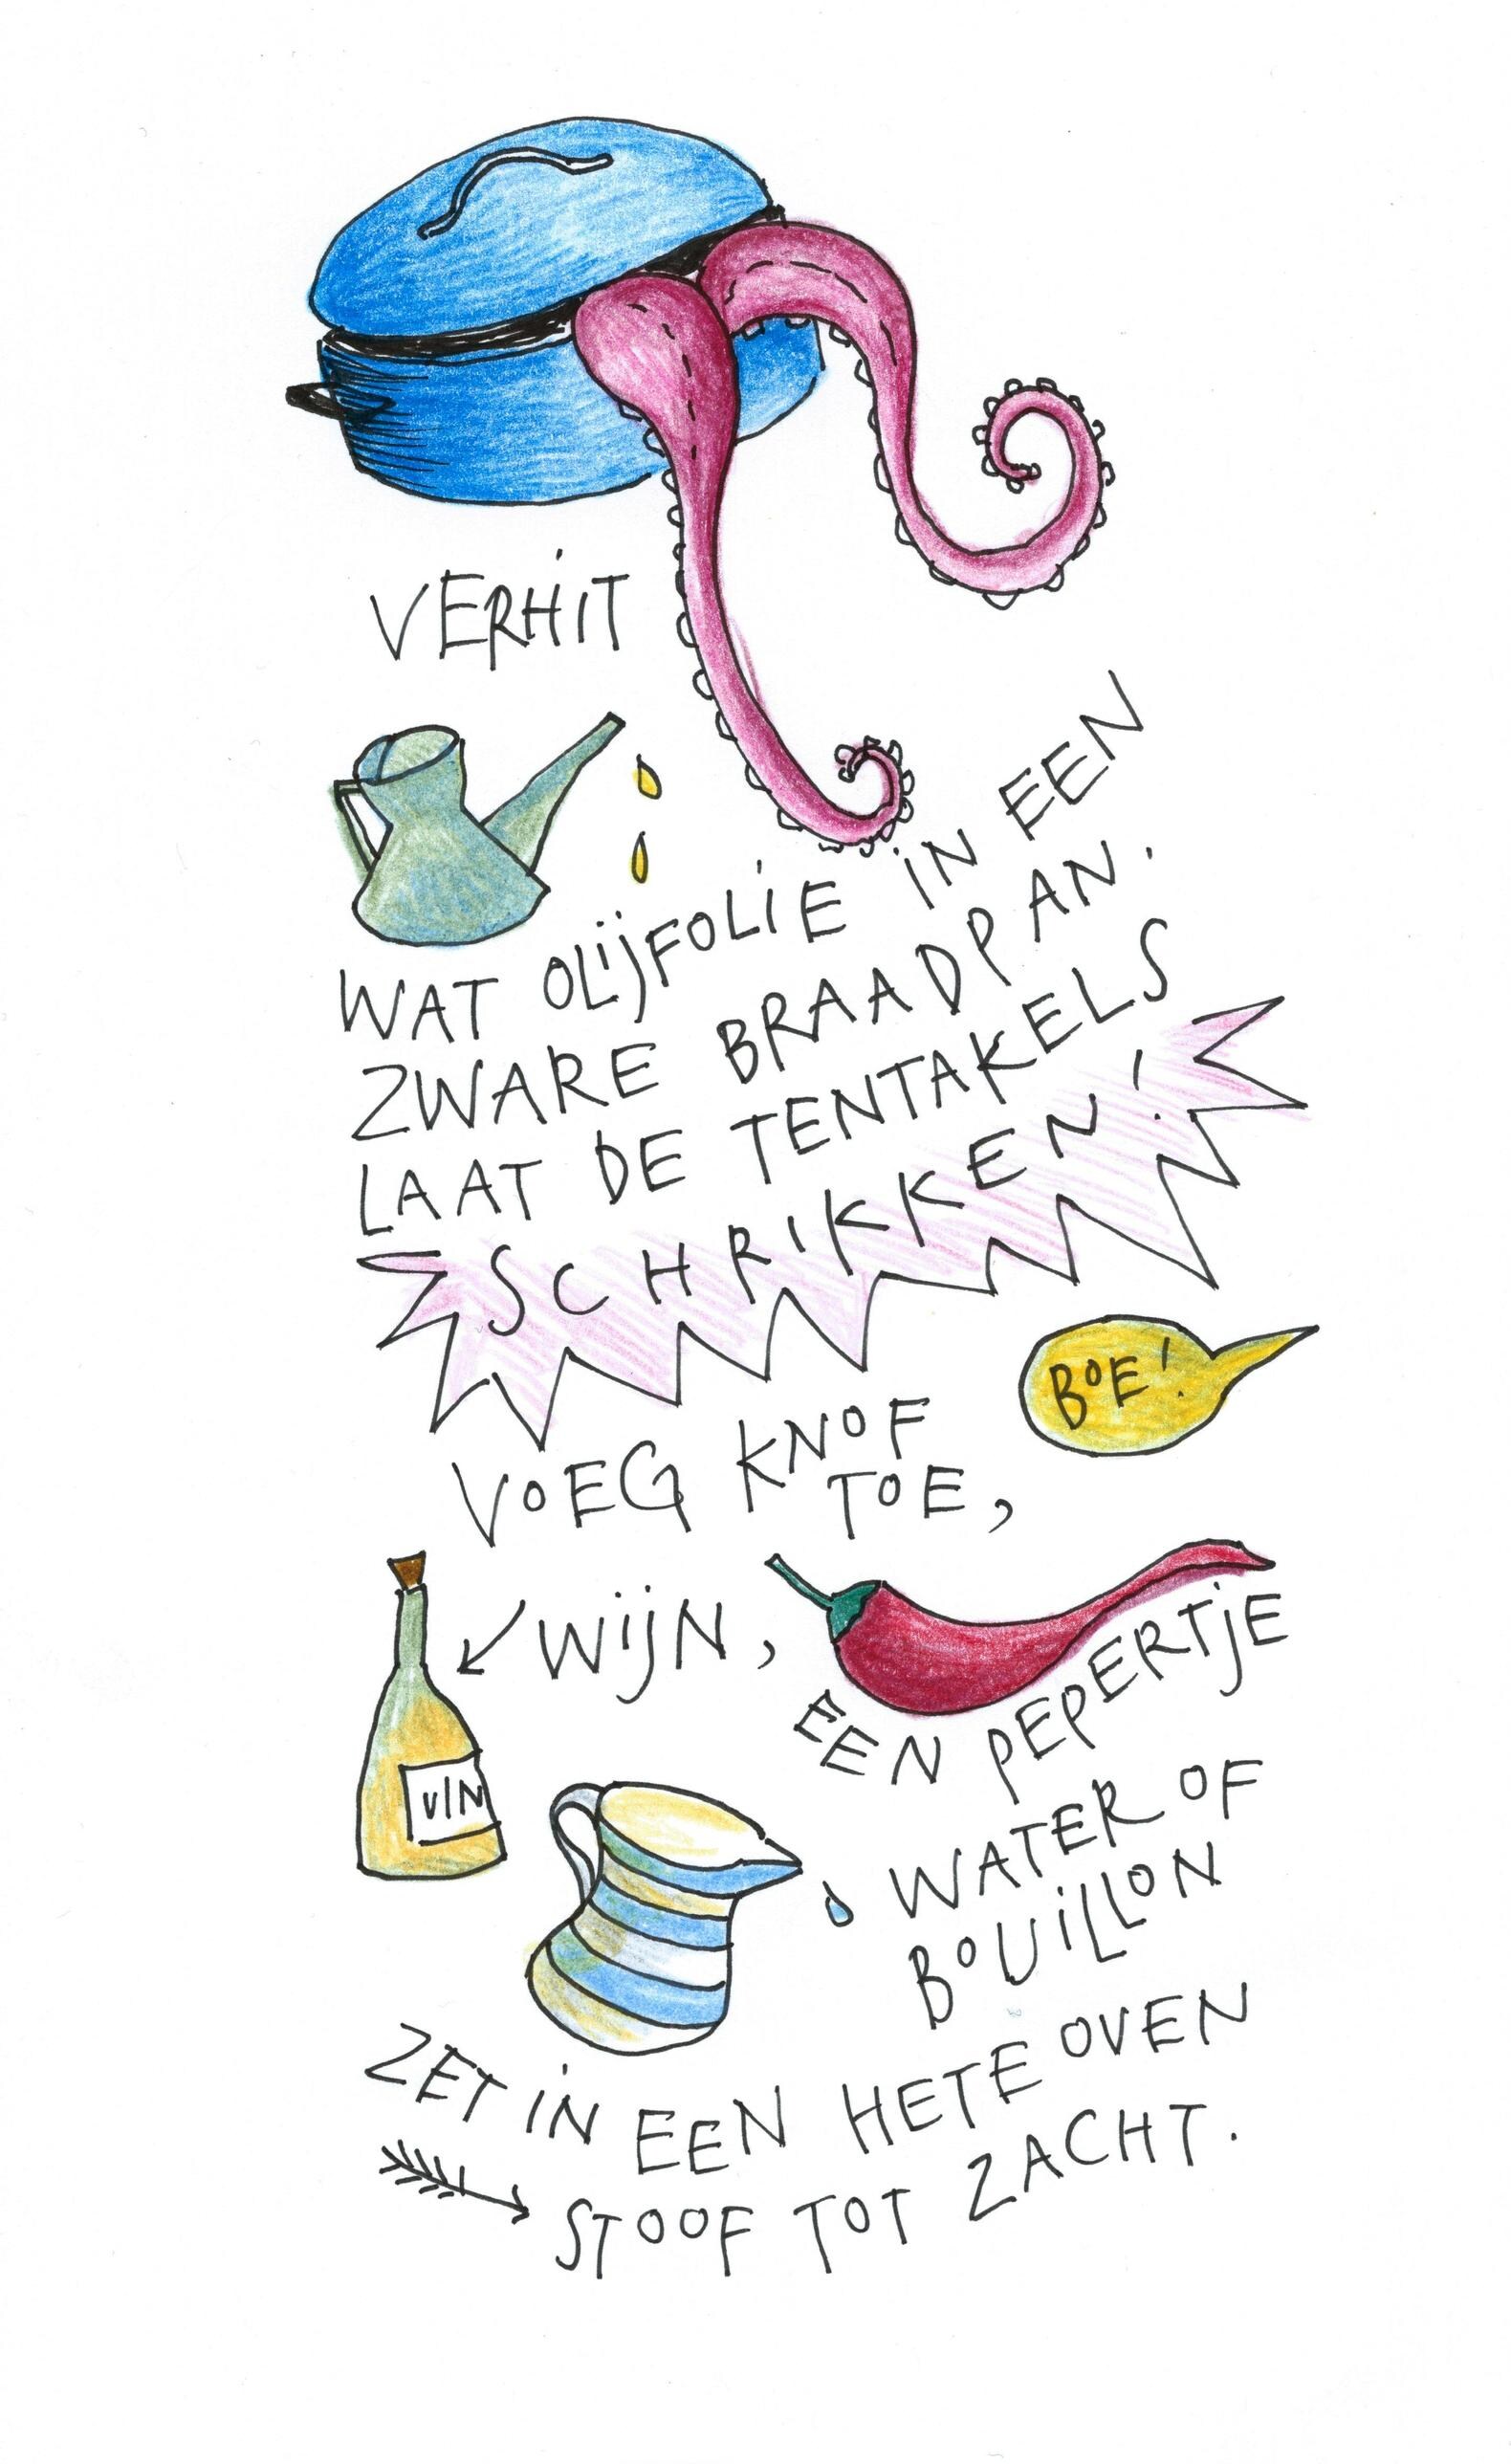 VERHIT
WAT OLIJFOLIE IN EEN
ZWARE BRAADPAN.
LAAT DE TENTAKELS
SCHRIKKEN!
BOE!
VOEG KNOF
TOE,
WIJN,
EEN PEPERTJE
VIN
WATER OF
BOUILLON
ZET IN EEN HETE OVEN
STOOF TOT ZACHT.